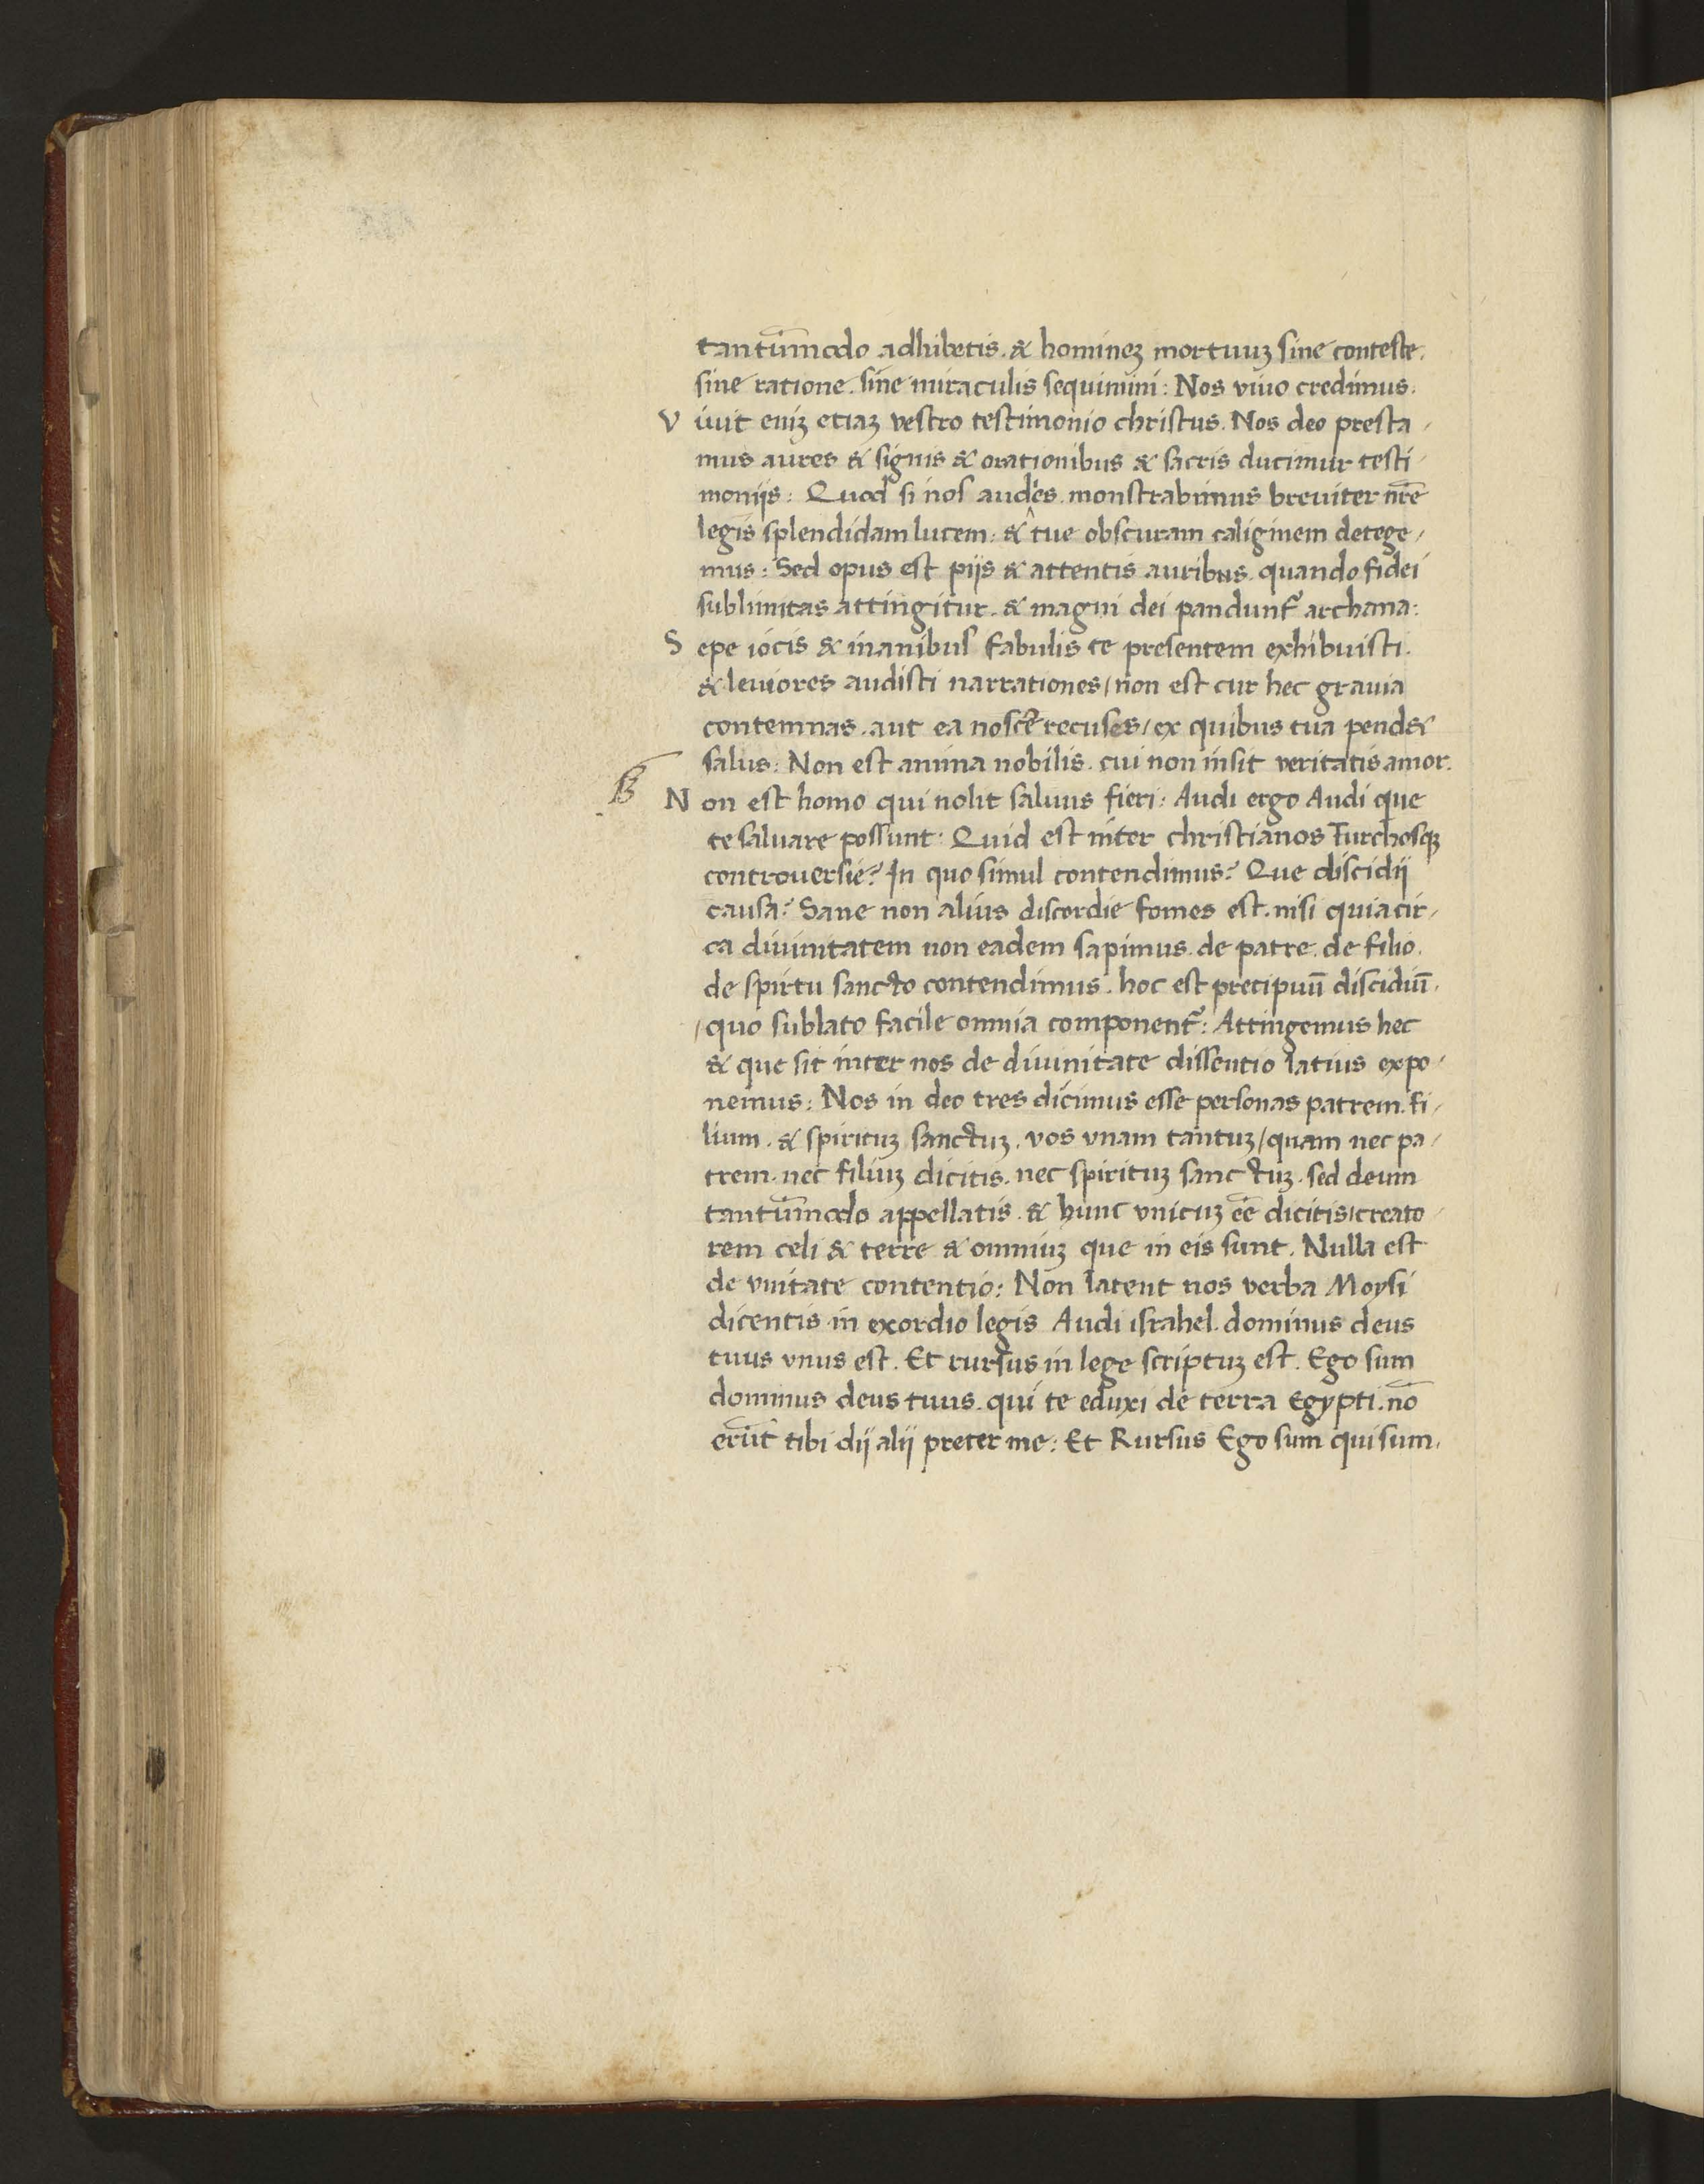 tantum̄modo adhibetis. & homineʒ mortuuʒ sine conteste.
sine ratione. sine miraculis sequimini: Nos viuo credimus.
V iuit eniʒ etiaʒ vestro testimonio christus. Nos deo presta/
mus aures & signis & orationibus & sacris ducimur testi/
moniis: Quod si nos audies monstrabimus breuiter nr̄e
legis splendidam lucem: & tue obscuram caliginem detege/
mus: Sed opus est piis & attentis auribus. quando fidei
sublimitas attingitur. & magni dei pandunt᷑ archana:
S epe iocis & inanibus fabulis te presentem exhibuisti.
& leuiores audisti narrationes/ non est cur hec grauia
contemnas. aut ea noscere recuses/ ex quibus tua pendet
salus: Non est anima nobilis. cui non insit veritatis amor.
B
N on est homo qui nolit saluus fieri: Audi ergo Audi que
te saluare possunt: Quid est inter christianos Turchosqʒ
controuersie? In quo simul contendimus? Que discidij
causa? Sane non alius discordie fomes est. nisi quia cir/
ca diuinitatem non eadem sapimus. de patre. de filio.
de spiritu sancto contendimus. hoc est precipuū discidiū.
/quo sublato facile omnia component᷑: Attingemus hec
& que sit inter nos de diuinitate dissentio latius expo/
nemus: Nos in deo tres dicimus esse personas patrem. fi/
lium. & spirituʒ sanctuʒ. vos vnam tantuʒ/ quam nec pa/
trem. nec filiuʒ dicitis. nec spirituʒ sanctuʒ. sed deum
tantum̄modo appellatis. & hunc vnicuʒ eē dicitis/ creato/
rem celi & terre & omniuʒ que in eis sunt. Nulla est
de vnitate contentio: Non latent nos verba Moysi
dicentis in exordio legis Audi israhel. dominus deus
tuus vnus est. Et rursus in lege scriptuʒ est. Ego sum
dominus deus tuus. qui te eduxi de terra Egypti. nō
erūt tibi dij alij preter me: Et Rursus Ego sum qui sum.